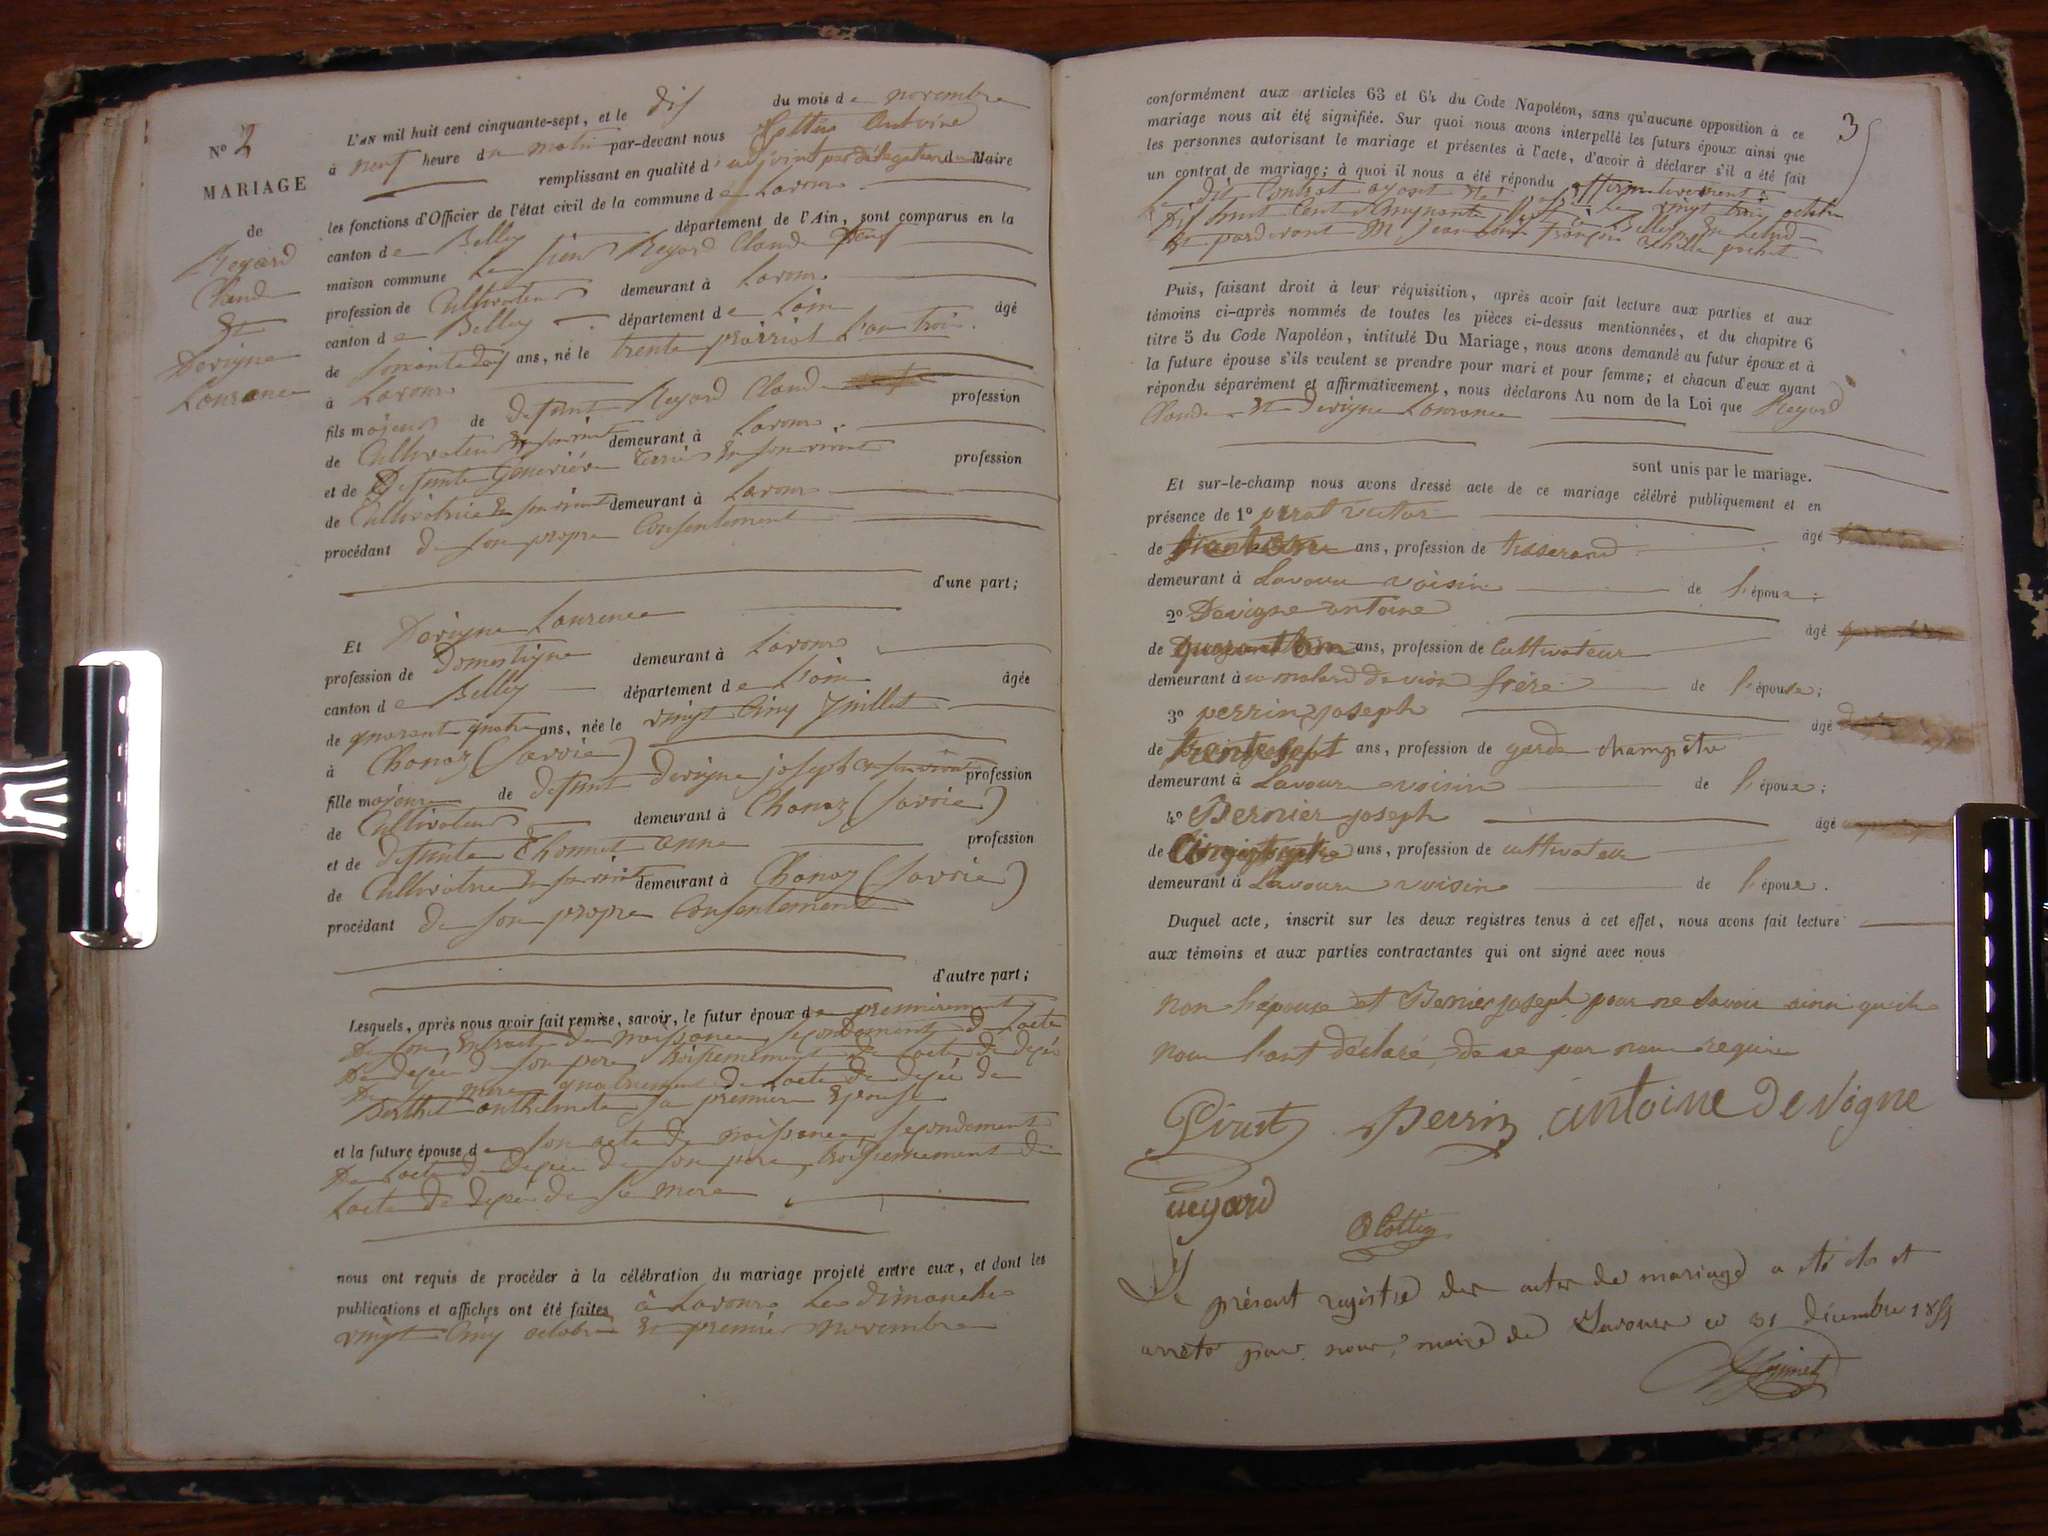 N° 2
MARIAGE
de
Regard
Claude
Et
Devigne
Laurence
L'AN mil huit cent cinquante-sept, et le dix du mois de novembre
à neuf heure du matin par-devant nous Antoine
remplissant en qualité d'adjoint par délégation du Maire
les fonctions d'Officier de l'état civil de la commune de Lavour
canton de Belley département de l'Ain, sont comparus en la
maison commune Le sieur Regard Claude
profession de Cultivateur demeurant à Lavour
canton de Belley département de L'ain âgé
de ans, né le trente prairial L'an trois
à Lavour
fils majeur de défunt Regard Claude profession
de Cultivateur En son vivant demeurant à Lavour
et de Défunte Geneviève En son vivant profession
de Cultivatrice En son vivant demeurant à Lavour
procédant de son propre Consentement
d'une part;
Et Devigne Laurence
profession de Domestique demeurant à Lavour
canton de Belley département de L'ain âgée
de quarant quatre ans, née le vingt Cinq Juillet
à Chanaz (Savoie)
fille majeure de défunt Devigne joseph en son vivant profession
de Cultivateur demeurant à Chanaz (Savoie)
et de défunte Thomet anne profession
de Cultivatrice En son vivant demeurant à Chanaz (Savoie)
procédant de son propre Consentement
d'autre part;
Lesquels, après nous avoir fait remise, savoir, le futur époux de premièrement
De son Extrait de naissance, secondement de Lacte
De décès de son père, troisièmement de Lacte de décès
De sa mère, quatrièmement de Lacte de décès de
Berthet anthelmette sa première Epouse
et la future épouse de son acte de naissance, secondement
De Lacte de décès de son père, troisièmement de
Lacte de décès de sa mère
nous ont requis de procéder à la célébration du mariage projeté entre eux, et dont les
publications et affiches ont été faites à Lavour Les dimanches
vingt Cinq octobre Et premier novembre
3
conformément aux articles 63 et 64 du Code Napoléon, sans qu'aucune opposition à ce
mariage nous ait été signifiée. Sur quoi nous avons interpellé les futurs époux ainsi que
les personnes autorisant le mariage et présentes à l'acte, d'avoir à déclarer s'il a été fait
un contrat de mariage; à quoi il nous a été répondu affirmativement
Le dit Contrat ayant été passé Le vingt trois octobre
huit Cent Cinquante Sept à Belley
par devant Me Jean françois
Puis, faisant droit à leur réquisition, après avoir fait lecture aux parties et aux
témoins ci-après nommés de toutes les pièces ci-dessus mentionnées, et du chapitre 6
titre 5 du Code Napoléon, intitulé Du Mariage, nous avons demandé au futur époux et à
la future épouse s'ils veulent se prendre pour mari et pour femme; et chacun d'eux ayant
répondu séparément et affirmativement, nous déclarons Au nom de la Loi que Regard
Claude Et Devigne Laurence
sont unis par le mariage.
Et sur-le-champ nous avons dressé acte de ce mariage célébré publiquement et en
présence de 1° pirat victor âgé
de ans, profession de tisserand
demeurant à Lavour voisin de l'époux;
2° Devigne antoine âgé
de ans, profession de Cultivateur
demeurant à frère de l'épouse;
3° perrin joseph âgé
de trente sept ans, profession de garde champêtre
demeurant à Lavour voisin de l'époux;
4° Bernier joseph âgé
de ans, profession de cultivateur
demeurant à Lavour voisin de l'époux.
Duquel acte, inscrit sur les deux registres tenus à cet effet, nous avons fait lecture
aux témoins et aux parties contractantes qui ont signé avec nous
non l'épouse et Bernier joseph pour ne savoir ainsi qu'ils
nous l'ont déclaré, de ce par nous requis
Perrin antoine devigne
regard
Le présent registre des actes de mariage a été clos et
arrêté par nous, maire de Lavour ce 31 décembre 1857